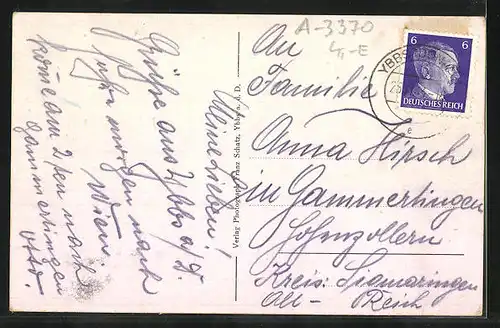 A-3370
4,-E
6 6
DEUTSCHES REICH
YBBS
e
An
Familie
Anna Hirsch
in Gammertingen
Hohenzollern
Kreis: Sigmaringen
Alt- Reich
Verlag Photograph Franz Schatz, Ybbs a. d. D.
Meine Lieben!
Grüße aus Ybbs a/D.
fahre morgen nach
Wien.
kome am 2ten nach
Gammertingen
Otto.